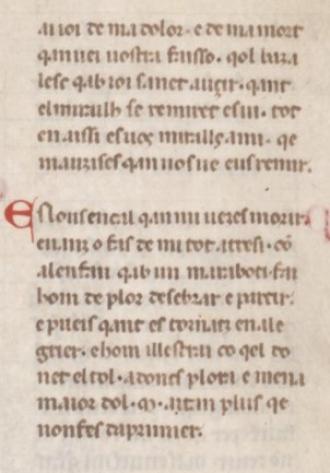 au ioi de ma dolor. e de ma mort
qan uei uostra faisso. qol bara
lesc qab ioi sauet aucir. qant
el mirailh se remiret e sui. tot
en aissi es uos miralls a mi. qe
maucises qan uos ue eus remir.
E Nous en cal qan mi uezes morir.
enanz o fais de mi tot atresi. co
al enfan qab un maraboti fai
hom de plor desebrar e partir.
e pueis qant es tornatz en ale
grier. e hom illestrai co qel do
net el tol. adoncs plora e mena
maior dol. m. aitan plus qe
non fes da primier.